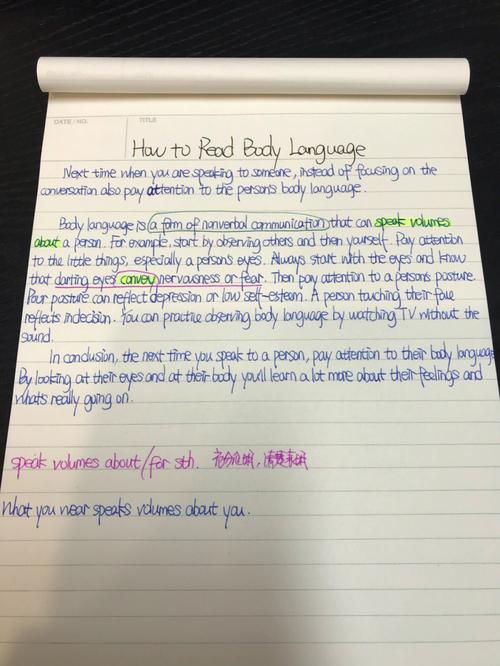 DATE / NO.
TITLE
How to Read Body Language
Next time when you are speaking to someone, instead of focusing on the
conversation also pay attention to the person's body language.
Body language is a form of nonverbal communication that can speak volumes
about a person. For example, start by observing others and then yourself. Pay attention
to the little things, especially a person's eyes. Always start with the eyes and know
that darting eyes convey nervousness or fear. Then pay attention to a person's posture.
Poor posture can reflect depression or low self-esteem. A person touching their face
reflects indecision. You can practice observing body language by watching TV without the
sound.
In conclusion, the next time you speak to a person, pay attention to their body language
By looking at their eyes and at their body you'll learn a lot more about their feelings and
what's really going on.
speak volumes about/for sth. 充分证明,清楚表明
What you wear speaks volumes about you.